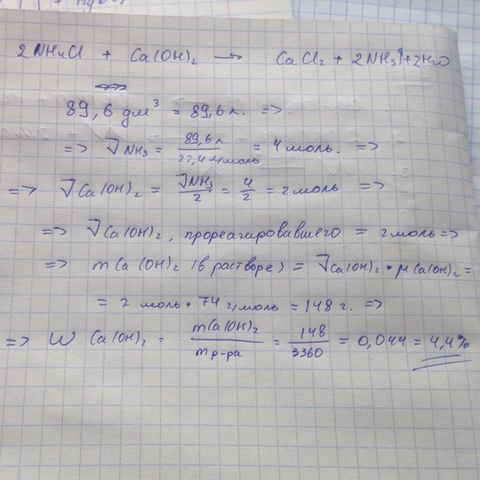 2NH4Cl + Ca(OH)2 → CaCl2 + 2NH3↑+2H2O
89,6 дм³ = 89,6 л. =>
=> νNH3 = 89,6 л / 22,4 л/моль = 4 моль. =>
=> νCa(OH)2 = νNH3/2 = 4/2 = 2 моль =>
=> νCa(OH)2, прореагировавшего = 2 моль =>
=> mCa(OH)2 (в растворе) = νCa(OH)2 · μCa(OH)2 =
= 2 моль · 74 г/моль = 148 г. =>
=> W Ca(OH)2 = mCa(OH)2 / mр-ра = 148/3360 = 0,044 = 4,4%